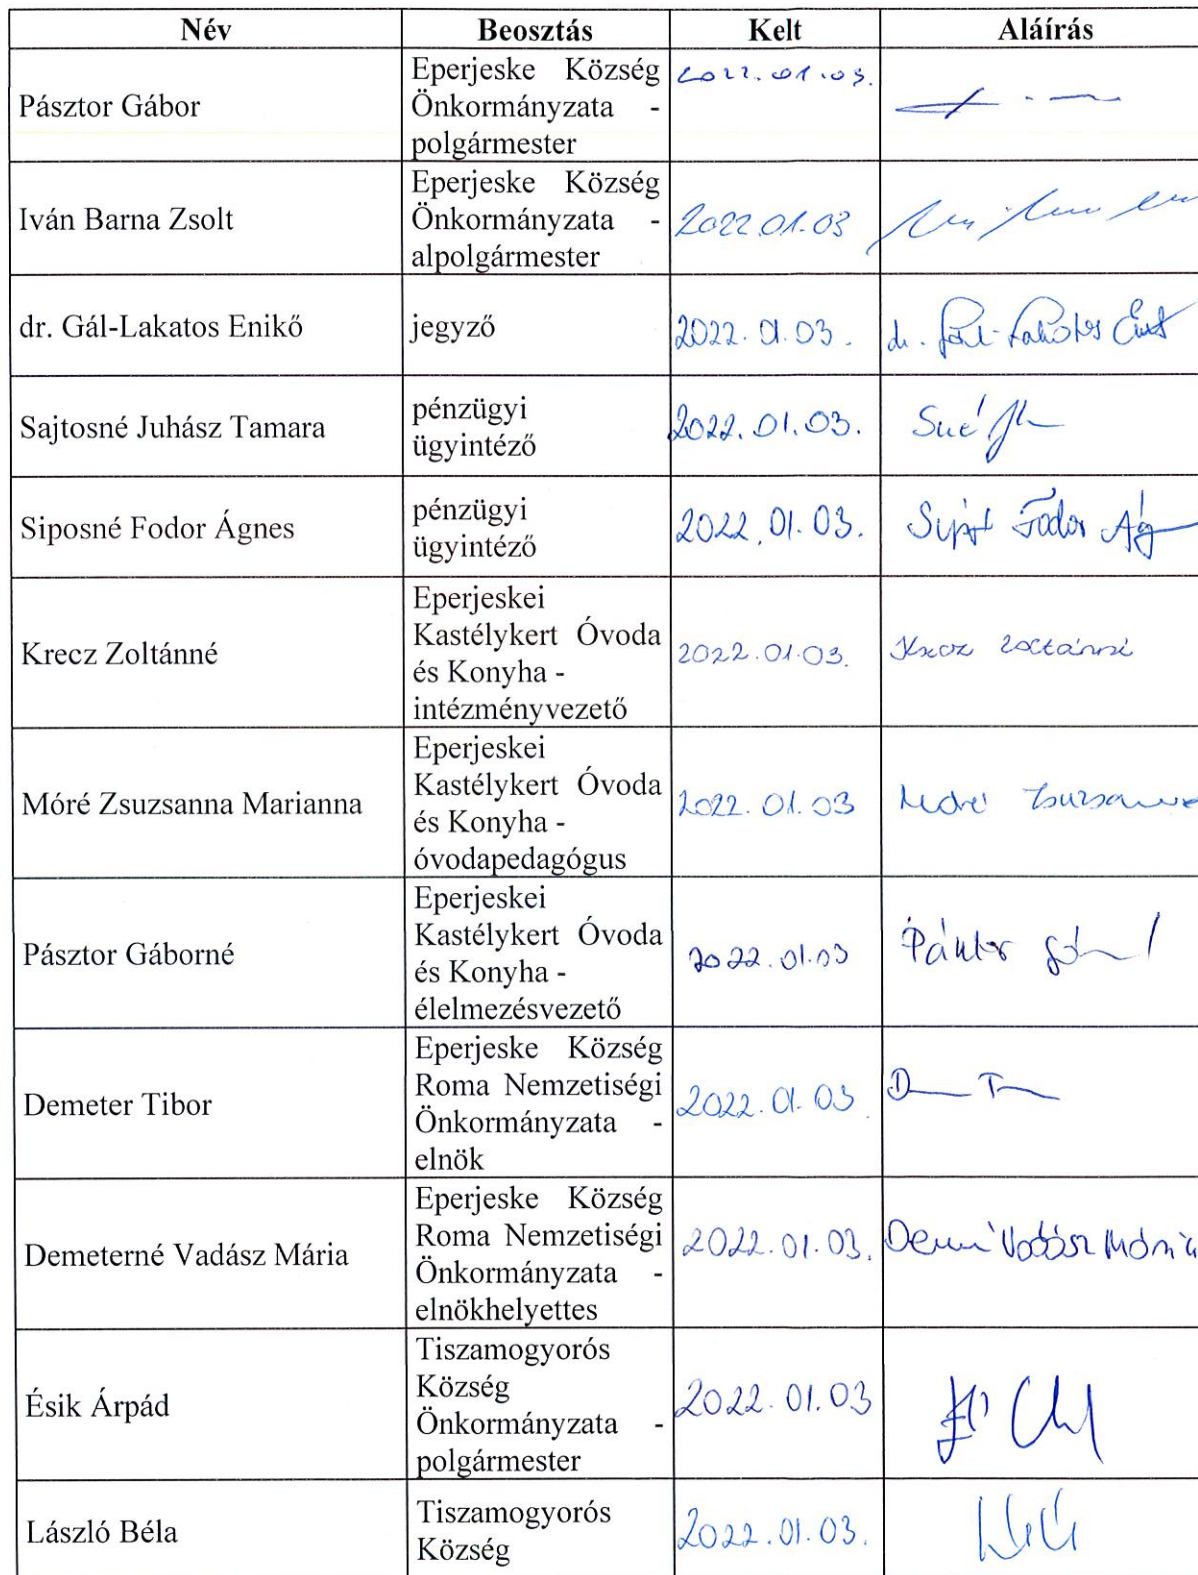 Név Beosztás Kelt Aláírás
Pásztor Gábor
Eperjeske Község
Önkormányzata -
polgármester
2022.01.03.
Iván Barna Zsolt
Eperjeske Község
Önkormányzata -
alpolgármester
2022.01.03
dr. Gál-Lakatos Enikő
jegyző
2022.01.03.
dr. Gál-Lakatos
Sajtosné Juhász Tamara
pénzügyi
ügyintéző
2022.01.03.
Siposné Fodor Ágnes
pénzügyi
ügyintéző
2022.01.03.
Fodor Ág
Krecz Zoltánné
Eperjeskei
Kastélykert Óvoda
és Konyha -
intézményvezető
2022.01.03.
Krecz Zoltánné
Móré Zsuzsanna Marianna
Eperjeskei
Kastélykert Óvoda
és Konyha -
óvodapedagógus
2022.01.03
Móré Zsuzsanna
Pásztor Gáborné
Eperjeskei
Kastélykert Óvoda
és Konyha -
élelmezésvezető
2022.01.03
Pásztor
Demeter Tibor
Eperjeske Község
Roma Nemzetiségi
Önkormányzata -
elnök
2022.01.03.
Demeterné Vadász Mária
Eperjeske Község
Roma Nemzetiségi
Önkormányzata -
elnökhelyettes
2022.01.03.
Vadász Mária
Ésik Árpád
Tiszamogyorós
Község
Önkormányzata -
polgármester
2022.01.03
László Béla
Tiszamogyorós
Község
2022.01.03.